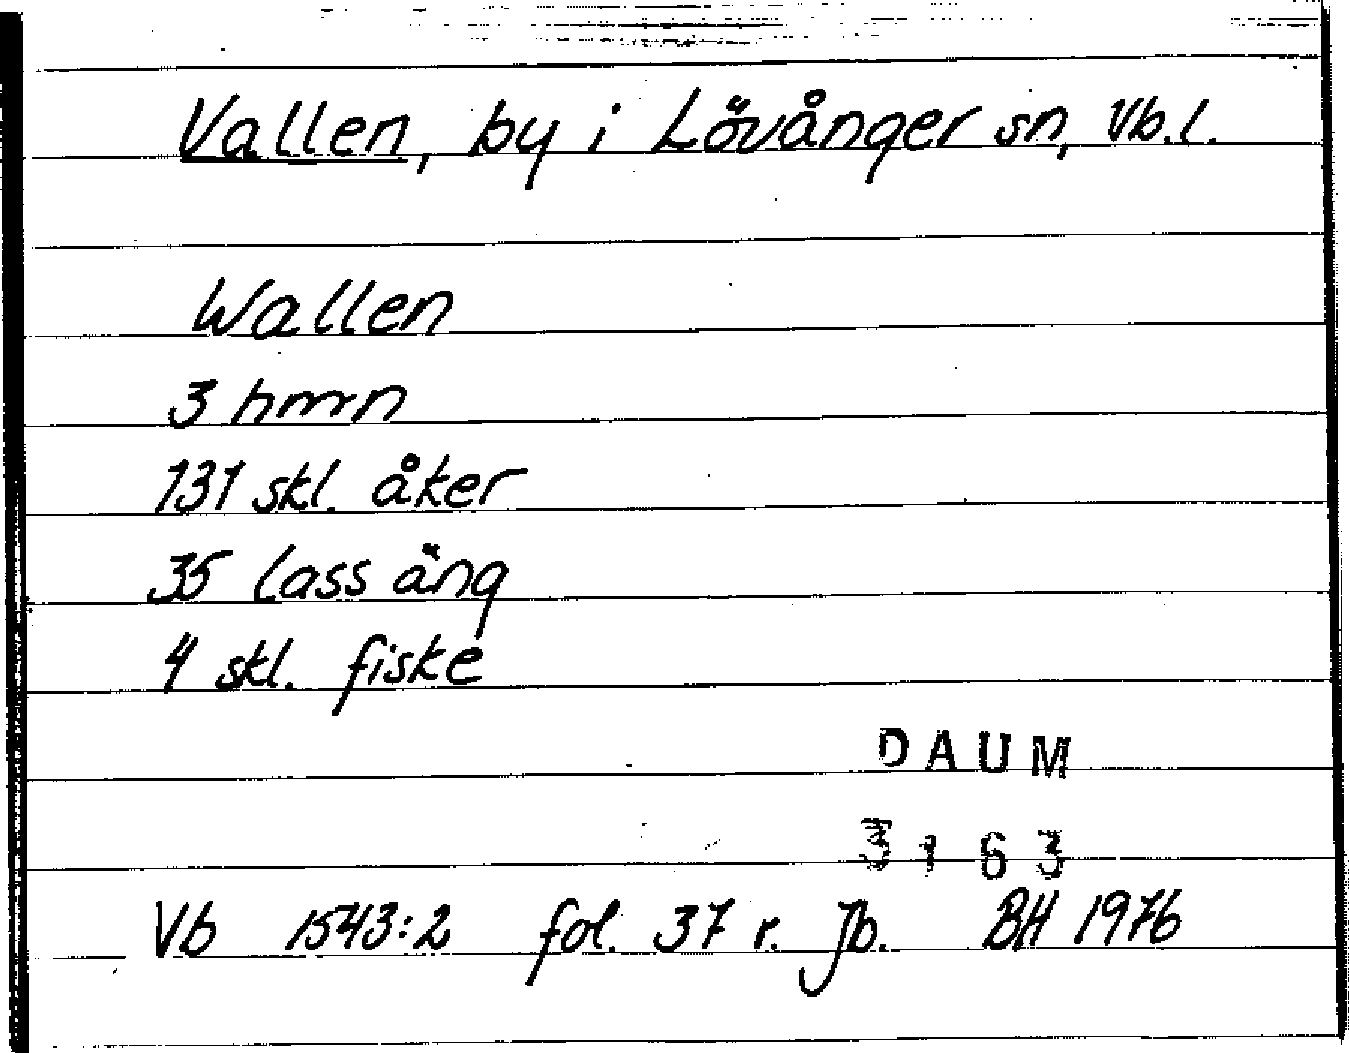 Vallen, by i Lövånger sn, Vb.l.
Wallen
3 hmn
131 skl. åker
35 lass äng
4 skl. fiske
DAUM
3163
Vb 1543:2 fol. 37 r. Jb. BH 1976